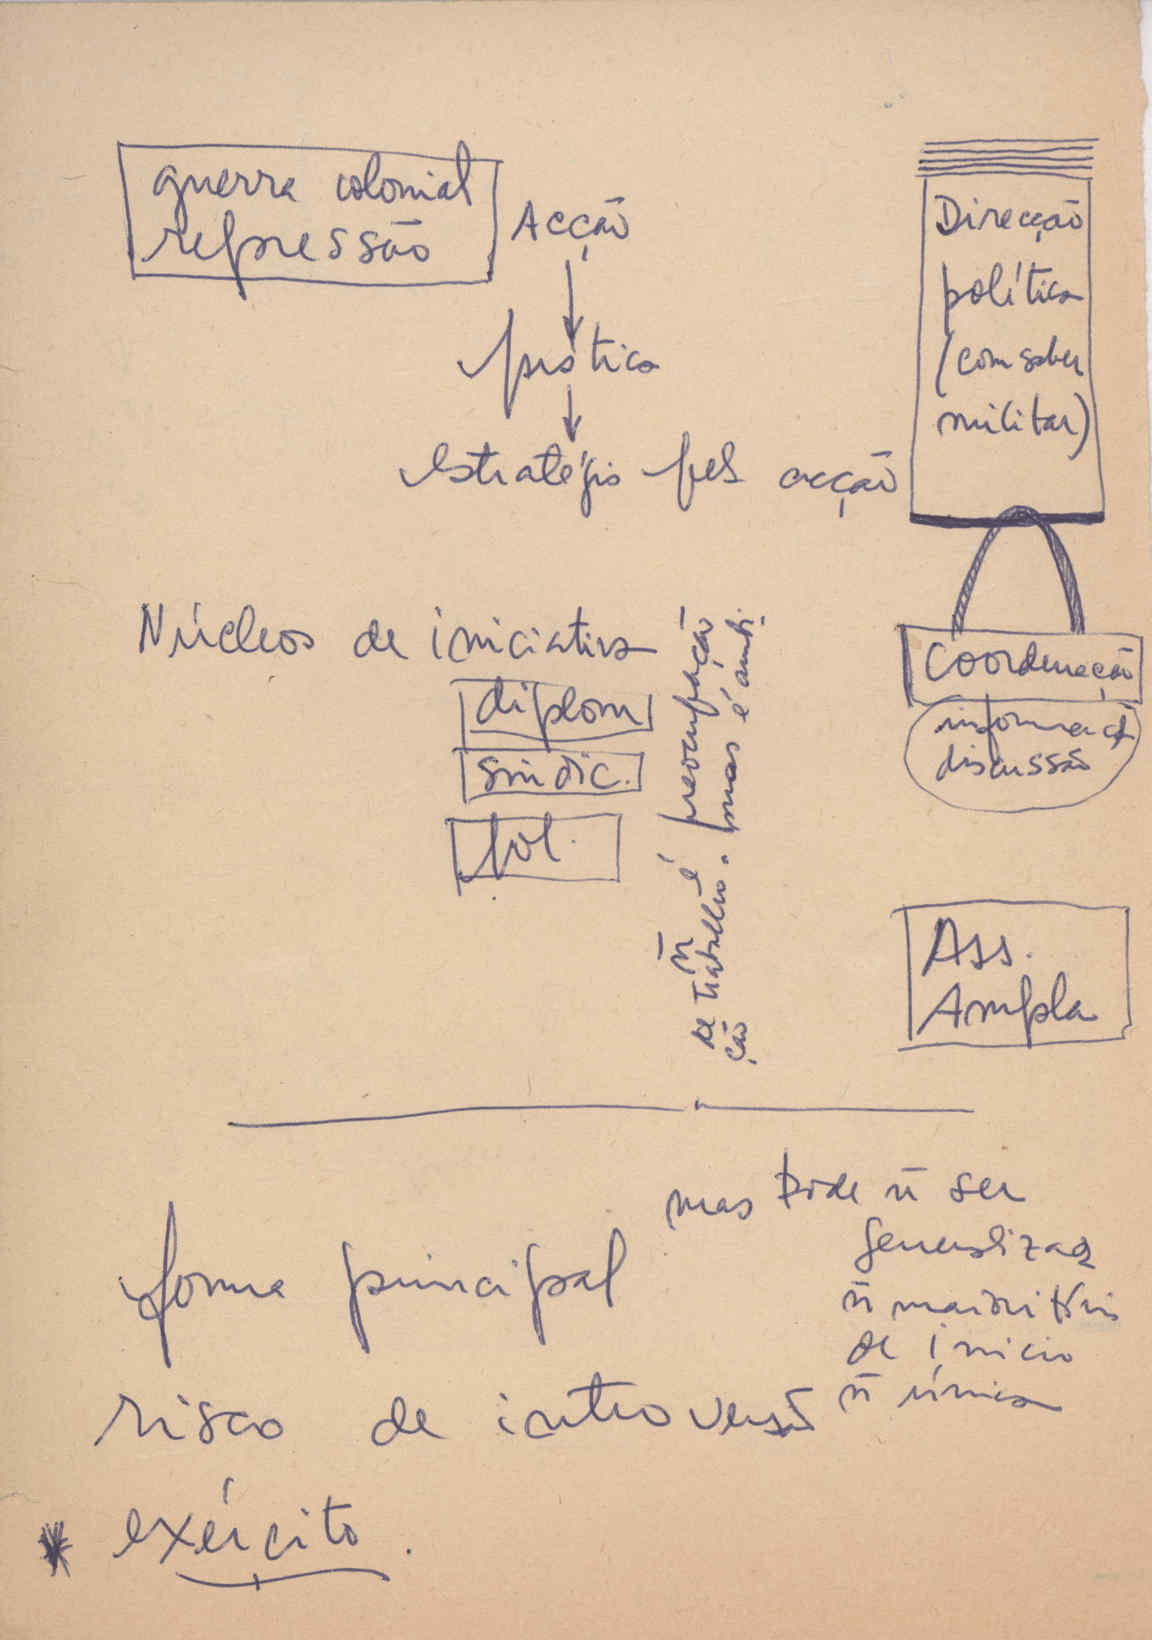 guerra colonial
repressão
Acção
prática
estratégia pela acção
Direcção
política
(com saber
militar)
Núcleos de iniciativa
diplom
sindic.
pol.
n̄ é preocupação
de trabalho. mas é ambi.
ção
Coordenação
informação
discussão
Ass.
Ampla
forma principal
mas pode n̄ ser
generalizada
n̄ maioritária
de início
n̄ única
risco de introversão
* exército.